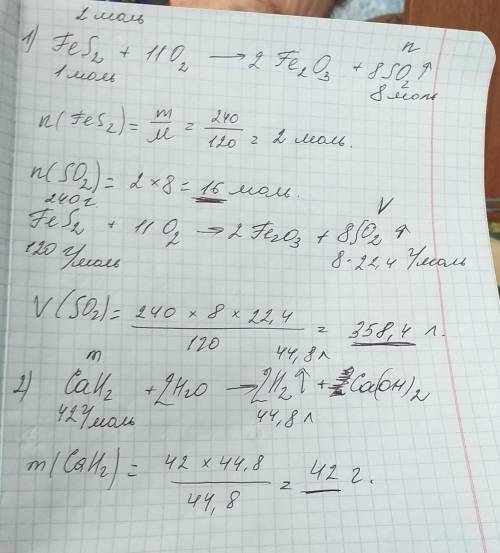 2 моль
n
1) FeS2 + 11O2 → 2 Fe2O3 + 8SO2↑
1 моль 8 моль
n(FeS2) = m/M = 240/120 = 2 моль.
n(SO2) = 2 × 8 = 16 моль.
240 г V
FeS2 + 11O2 → 2Fe2O3 + 8SO2↑
120 г/моль 8·22,4 г/моль
V(SO2) = 240 × 8 × 22,4 / 120 = 358,4 л.
m 44,8 л
2) CaH2 + 2H2O → 2H2↑ + Ca(OH)2
42 г/моль 44,8 л
m(CaH2) = 42 × 44,8 / 44,8 = 42 г.